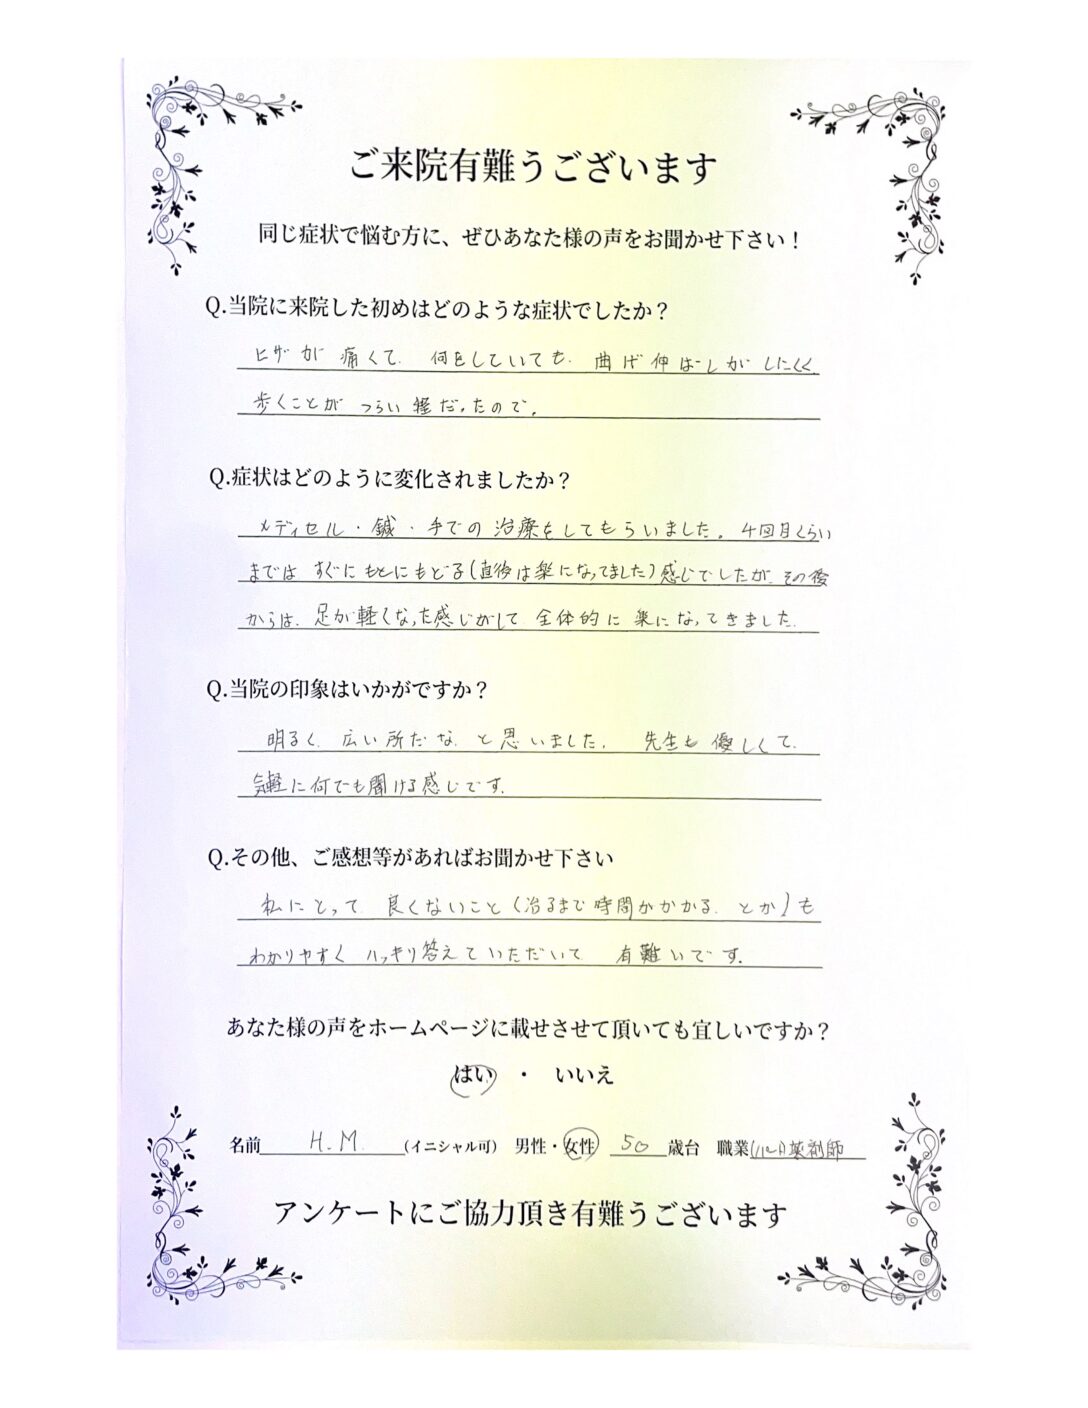 ご来院有難うございます
同じ症状で悩む方に、ぜひあなた様の声をお聞かせ下さい！
Q.当院に来院した初めはどのような症状でしたか？
ヒザが痛くて、何をしていても、曲げ伸ばしがしにくく、
歩くことがつらい程だったので。
Q.症状はどのように変化されましたか？
メディセル・鍼・手での治療をしてもらいました。4回目くらい
まではすぐにもとにもどる(直後は楽になってました)感じでしたが、その後
からは、足が軽くなった感じがして全体的に楽になってきました。
Q.当院の印象はいかがですか？
明るく、広い所だな、と思いました。先生も優しくて、
気軽に何でも聞ける感じです。
Q.その他、ご感想等があればお聞かせ下さい
私にとって良くないこと(治るまで時間がかかる、とか)も
わかりやすくハッキリ答えていただいて有難いです。
あなた様の声をホームページに載せさせて頂いても宜しいですか？
はい ・ いいえ
名前 H.M. (イニシャル可) 男性・女性 50歳台 職業(パート)薬剤師
アンケートにご協力頂き有難うございます